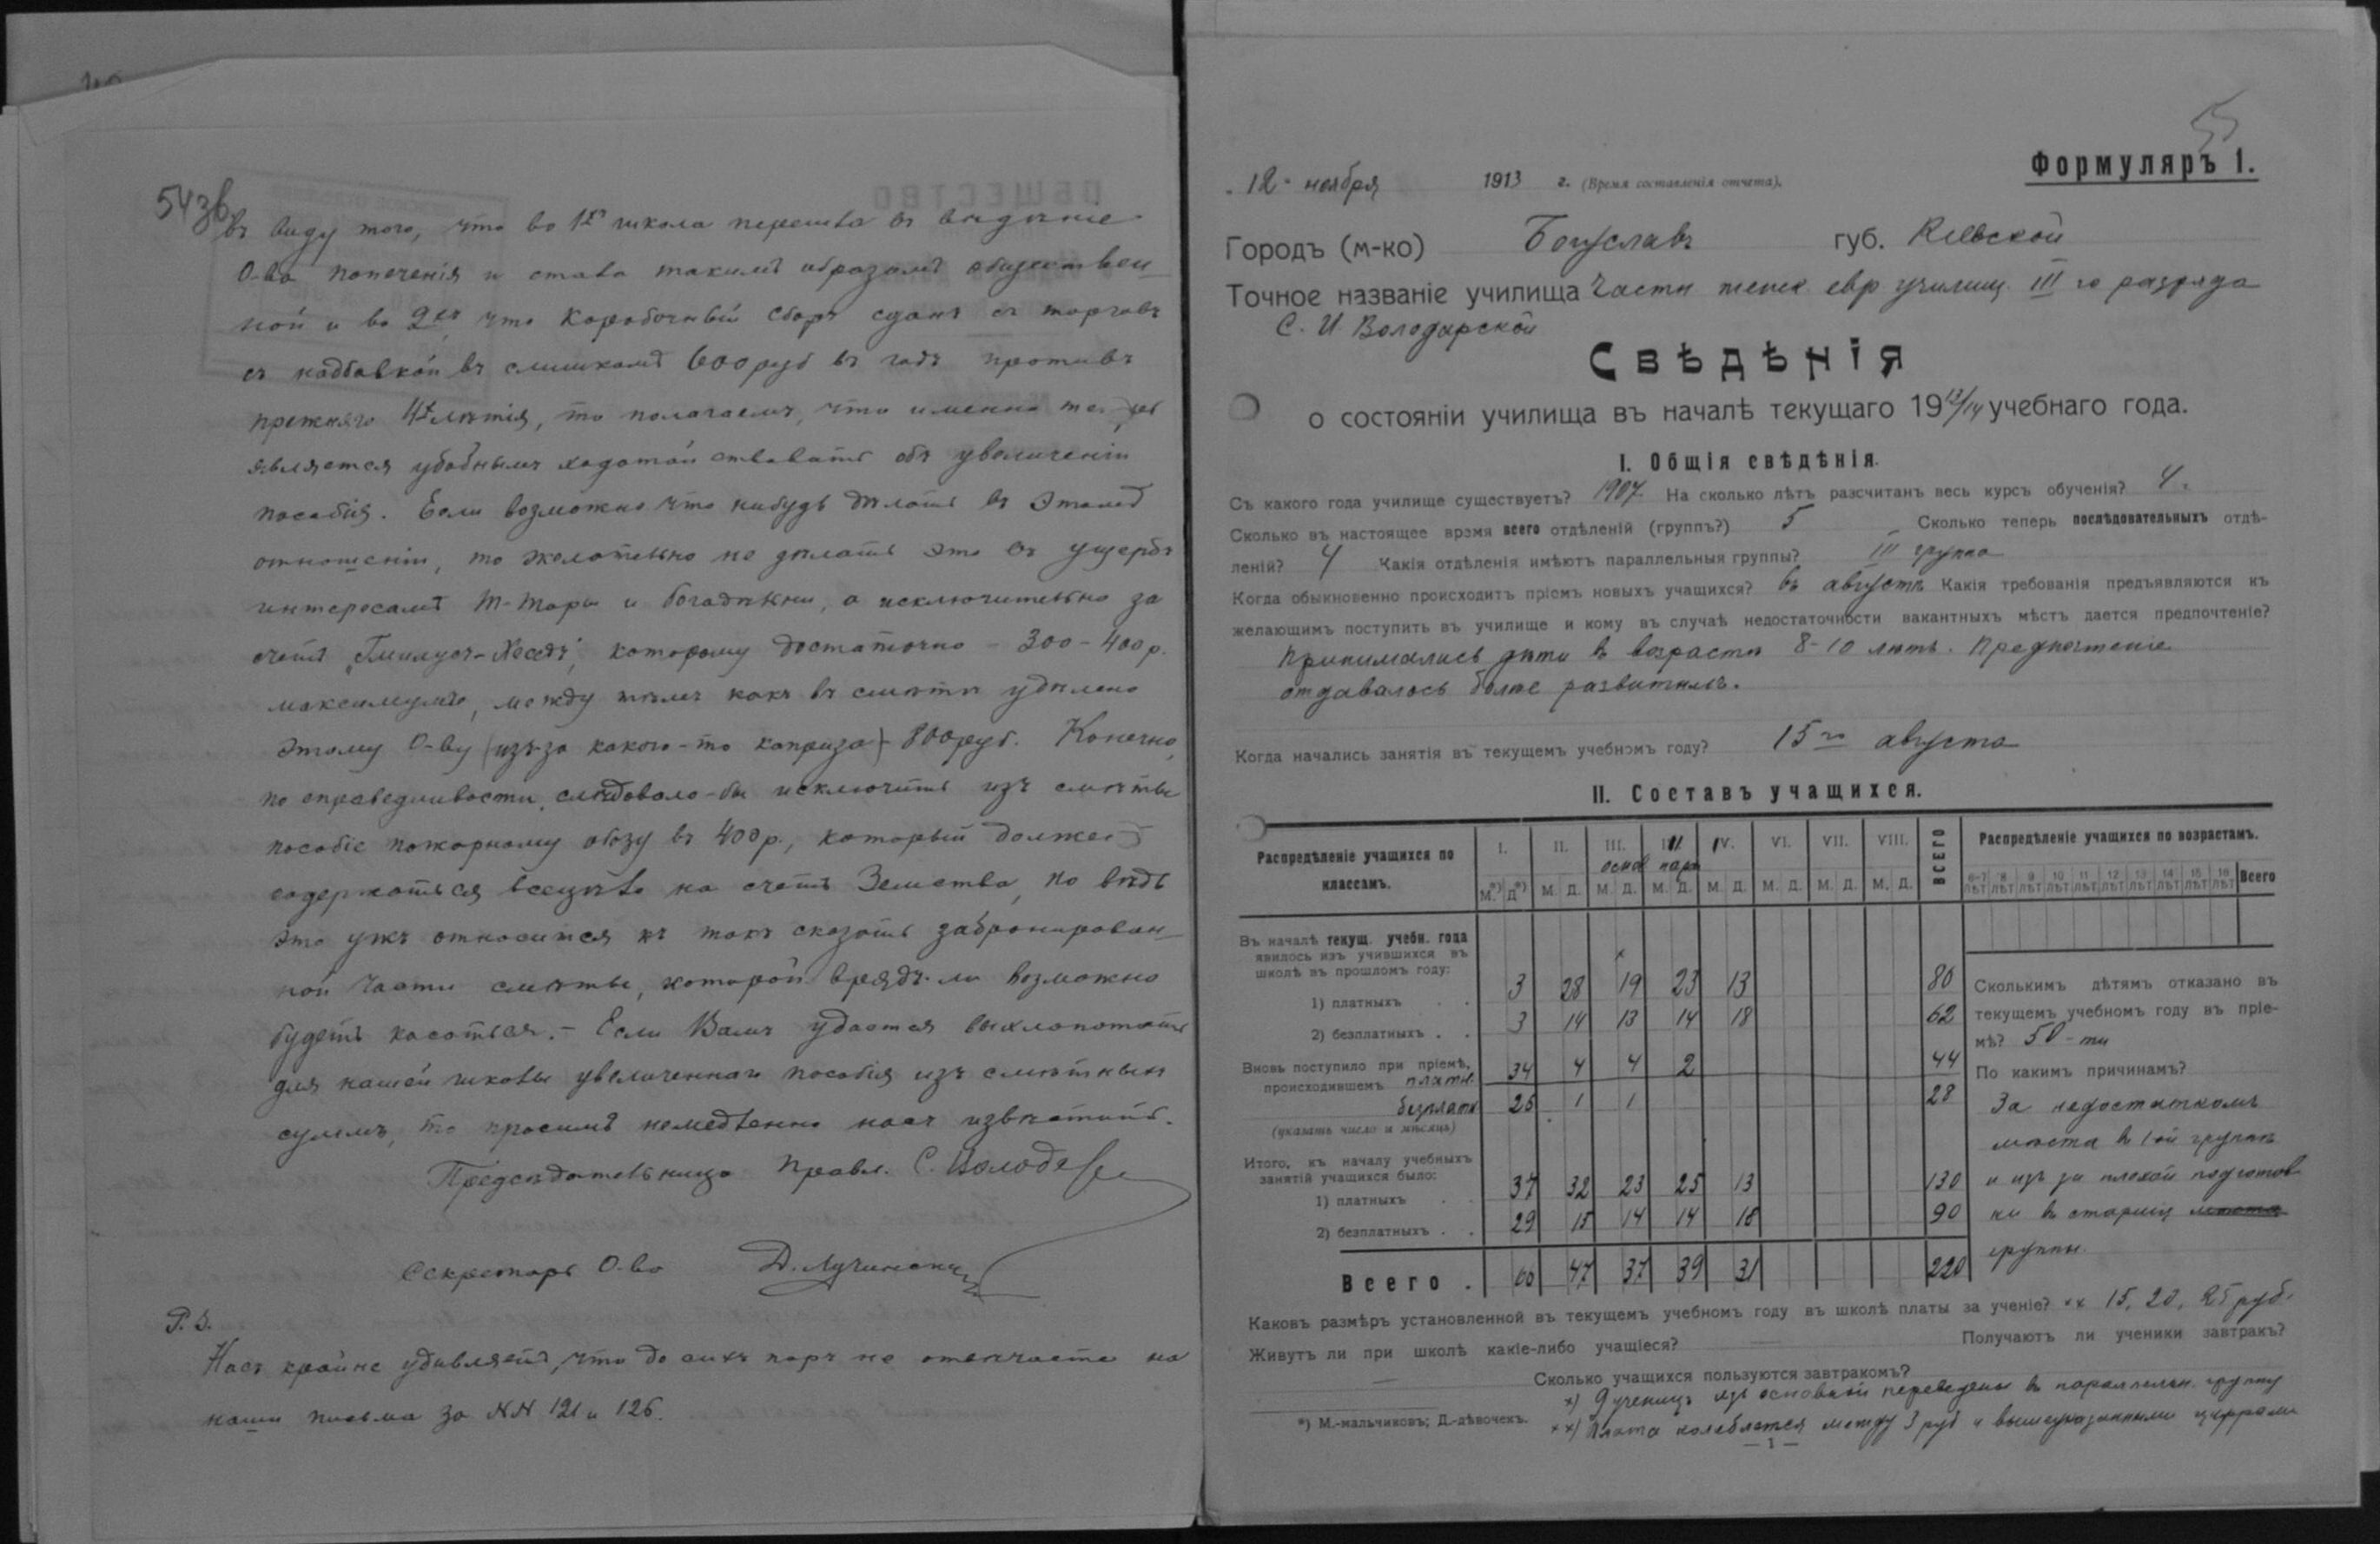 54зв
въ виду того, что во 1хъ школа перешла въ вѣдѣніе
О-ва попеченія и стала такимъ образомъ обществен-
ной и во 2хъ что коробочный сборъ сданъ съ торговъ
съ надбавкой въ слишкомъ 600 руб въ годъ противъ
прежняго 4хлѣтія, то полагаемъ, что именно теперь
является удобнымъ ходатайствовать объ увеличеніи
пособія. Если возможно что нибудь дѣлать въ этомъ
отношеніи, то желательно не дѣлать это въ ущербъ
интересамъ Т-Торы и богадѣльни, а исключительно за
счетъ "Гмилусъ-Хеседъ", которому достаточно - 300-400 р.
максимумъ, между тѣмъ какъ въ смѣтѣ удѣлено
этому О-ву (изъ-за какого-то каприза) - 800 руб. Конечно,
по справедливости, слѣдовало-бы исключить изъ смѣты
пособіе пожарному обозу въ 400 р., который долженъ
содержаться всецѣло на счетъ Земства, но вѣдь
это ужъ относится къ такъ сказать забронирован-
ной части смѣты, которой врядъ-ли возможно
будетъ касаться. - Если Вамъ удастся выхлопотать
для нашей школы увеличеннаго пособія изъ смѣтныхъ
суммъ, то просимъ немедленно насъ извѣстить.
Предсѣдательница Правл. С. Володар
Секретарь О-ва Д. Лучинскій
P.S.
Насъ крайне удивляетъ, что до сихъ поръ не отвѣчаете на
наши письма за NN 121 и 126.
55
Формуляръ 1.
"12" ноября 1913 г. (Время составленія отчета).
Городъ (м-ко) Богуславъ губ. Кіевской
Точное названіе училища Частн женск евр училищ III го разряда
С. И. Володарской
СВѢДѢНІЯ
о состояніи училища въ началѣ текущаго 1913/14 учебнаго года.
I. Общія свѣдѣнія.
Съ какого года училище существуетъ? 1907. На сколько лѣтъ разсчитанъ весь курсъ обученія? 4.
Сколько въ настоящее время всего отдѣленій (группъ?) 5 Сколько теперь послѣдовательныхъ отдѣ-
леній? 4 Какія отдѣленія имѣютъ параллельныя группы? III группа
Когда обыкновенно происходитъ пріемъ новыхъ учащихся? въ августѣ Какія требованія предъявляются къ
желающимъ поступить въ училище и кому въ случаѣ недостаточности вакантныхъ мѣстъ дается предпочтеніе?
Принимались дѣти въ возрастѣ 8-10 лѣтъ. Предпочтеніе
отдавалось болѣе развитымъ.
Когда начались занятія въ текущемъ учебномъ году? 15 го августа
II. Составъ учащихся.
Распредѣленіе учащихся по классамъ. I. II. III. основ III. пар IV. VI. VII. VIII. ВСЕГО Распредѣленіе учащихся по возрастамъ.
М.*) Д*) М. Д. М. Д. М. Д. М. Д. М. Д. М. Д. М. Д. 6-7 лѣт 8 лѣт 9 лѣт 10 лѣт 11 лѣт 12 лѣт 13 лѣт 14 лѣт 15 лѣт 16 лѣт Всего
Въ началѣ текущ. учебн. года
явилось изъ учившихся въ
школѣ въ прошломъ году: х
1) платныхъ . . 3 28 19 23 13 86
2) безплатныхъ . . 3 14 13 14 18 62
Вновь поступило при пріемѣ,
происходившемъ платн. 34 4 4 2 44
безплатн 26 1 1 28
(указать число и мѣсяцъ)
Итого, къ началу учебныхъ
занятій учащихся было:
1) платныхъ . . 37 32 23 25 13 130
2) безплатныхъ . . 29 15 14 14 18 90
Всего . 66 47 37 39 31 220
Сколькимъ дѣтямъ отказано въ
текущемъ учебномъ году въ пріе-
мѣ? 50-ти
По какимъ причинамъ?
За недостаткомъ
мѣста въ 1ой группѣ
и изъ за плохой подготов
ки въ старшія мѣста
группы.
Каковъ размѣръ установленной въ текущемъ учебномъ году въ школѣ платы за ученіе? хх 15, 20, 25 руб.
Живутъ ли при школѣ какіе-либо учащіеся? — Получаютъ ли ученики завтракъ?
— Сколько учащихся пользуются завтракомъ?
х) 9 ученицъ изъ основной переведены въ параллельн. группу
*) М.-мальчиковъ; Д.-дѣвочекъ.
хх) Плата колеблется между 3 руб и вышеуказанными цифрами
— 1 —